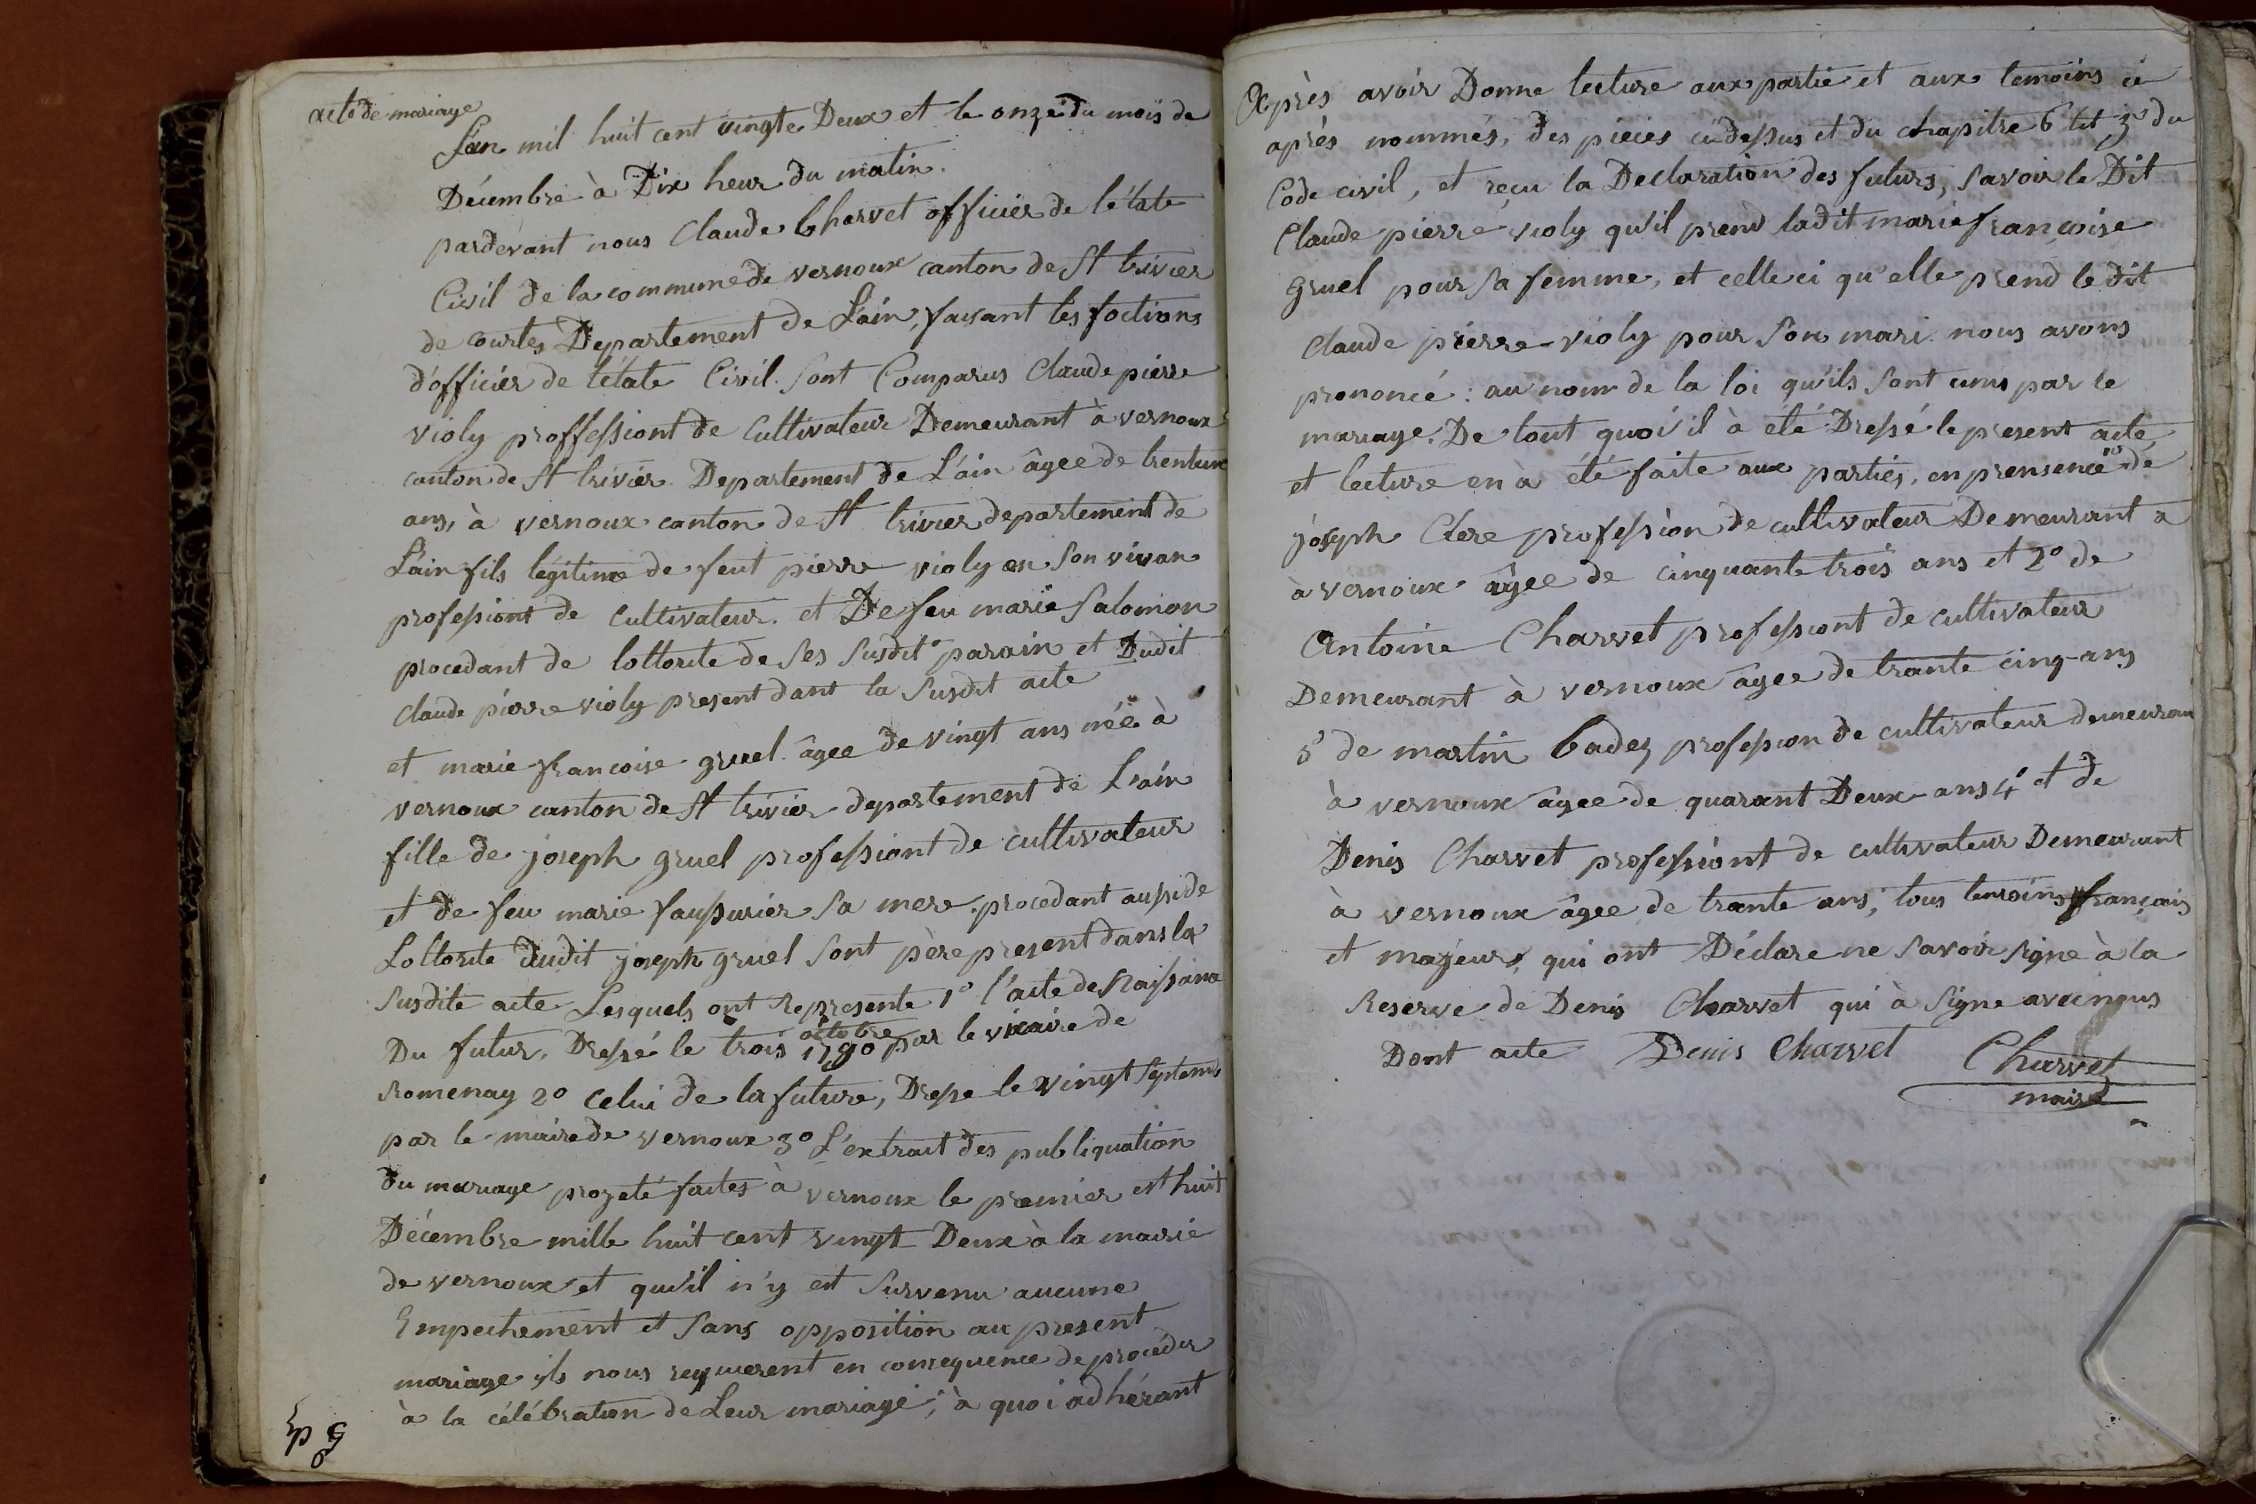 acte de mariage
L'an mil huit cent vingte Deux et le onze du mois de
Décembre à Dix heur du matin.
pardevant nous Claude Charvet officier de l'étate
Civil de la commune de vernoux canton de St trivier
de courtes Departement de L'ain, faisant les foctions
d'officier de l'étate Civil. Sont Comparus Claude pierre
violy proffessiont de Cultivateur Demeurant à vernoux
canton de St trivier Departement de L'ain âgee de trenteux
ans, à vernoux canton de St trivier departement de
L'ain fils légitime de feut pierre violy en Son vivan
professiont de Cultivateur. et De feu marie Salomon
procedant de lottorite de Ses Susdit parain et Dudit
Claude pierre violy present dant la Susdit acte
et marie francoise gruel âgee de vingt ans née à
vernoux canton de St trivier departement de L'ain
fille de joseph gruel professiont de cultivateur
et de feu marie faussurier Sa mere. procedant aussi de
Lottorite dudit joseph gruel Sont père present dans la
Susdite acte Lesquels ont Represente 1° l'acte de Naissance
octobre
Du futur, Dressé le trois 1790 par le vicaire de
Romenay 2° Celui de la future, Dresse le vingt Septems
par le maire de vernoux 3° L'extrait des publiquation
du mariage projeté faites à vernoux le premier et huit
Décembre mille huit cent vingt Deux à la mairie
de vernoux et qu'il n'y est Survenu aucune
Empechement et Sans opposition au present
mariage ils nous requierent en consequence de procéder
à la célébration de Leur mariage; à quoi adhérant
Après avoir Donne lecture aux partie et aux temoins ci
après nommés, des pieces ci dessus et du chapitre 6 tit 3° du
Code civil, et reçu la Declaration des futurs, Savoir le Dit
Claude pierre violy qu'il prend ladit marie françoise
gruel pour Sa femme, et celle ci qu'elle prend le dit
Claude pierre violy pour Son mari nous avons
prononcé: au nom de la loi qu'ils Sont unis par le
mariage. De tout quoi il à été Dressé le present acte
et lecture en à été faite aux parties, en prensence de
joseph Clere profession de cultivateur Demeurant à
à vernoux âgee de cinquante trois ans et 2° de
Antoine Charvet professiont de cultivateur
Demeurant à vernoux âgee de trante cinq ans
3° de martin badez profession de cultivateur demeuran
à vernoux âgee de quarant Deux ans 4° et de
Denis Charvet professiont de cultivateur Demeurant
à vernoux âgee de trante ans; tous temoins français
et majeurs, qui ont Déclare ne Savoir Signe à la
Reserve de Denis Charvet qui à Signe avec nous
Dont acte Denis Charvet Charvet
maire